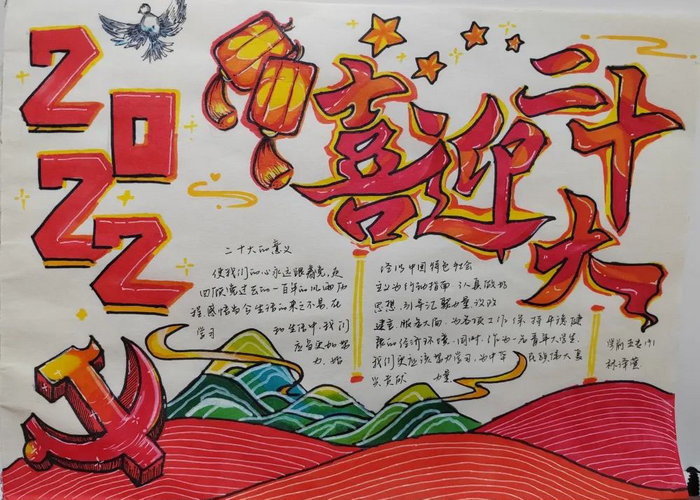 2022
喜迎二十大
二十大的意义
使我们的心永远跟着党,在
回顾党过去的一百年的风雨历
程感悟当今生活的来之不易在
学习 和生活中,我们
应当更加努
力,始
终以中国特色社会
主义为行动指南,认真做好
思想
建言服务大面,为各项工作保持平稳健
康的经济环境,同时,作为一名青年大学生,
我们更应该努力学习,为中华民族伟大复
兴贡献 力量.
学前
林泽萱